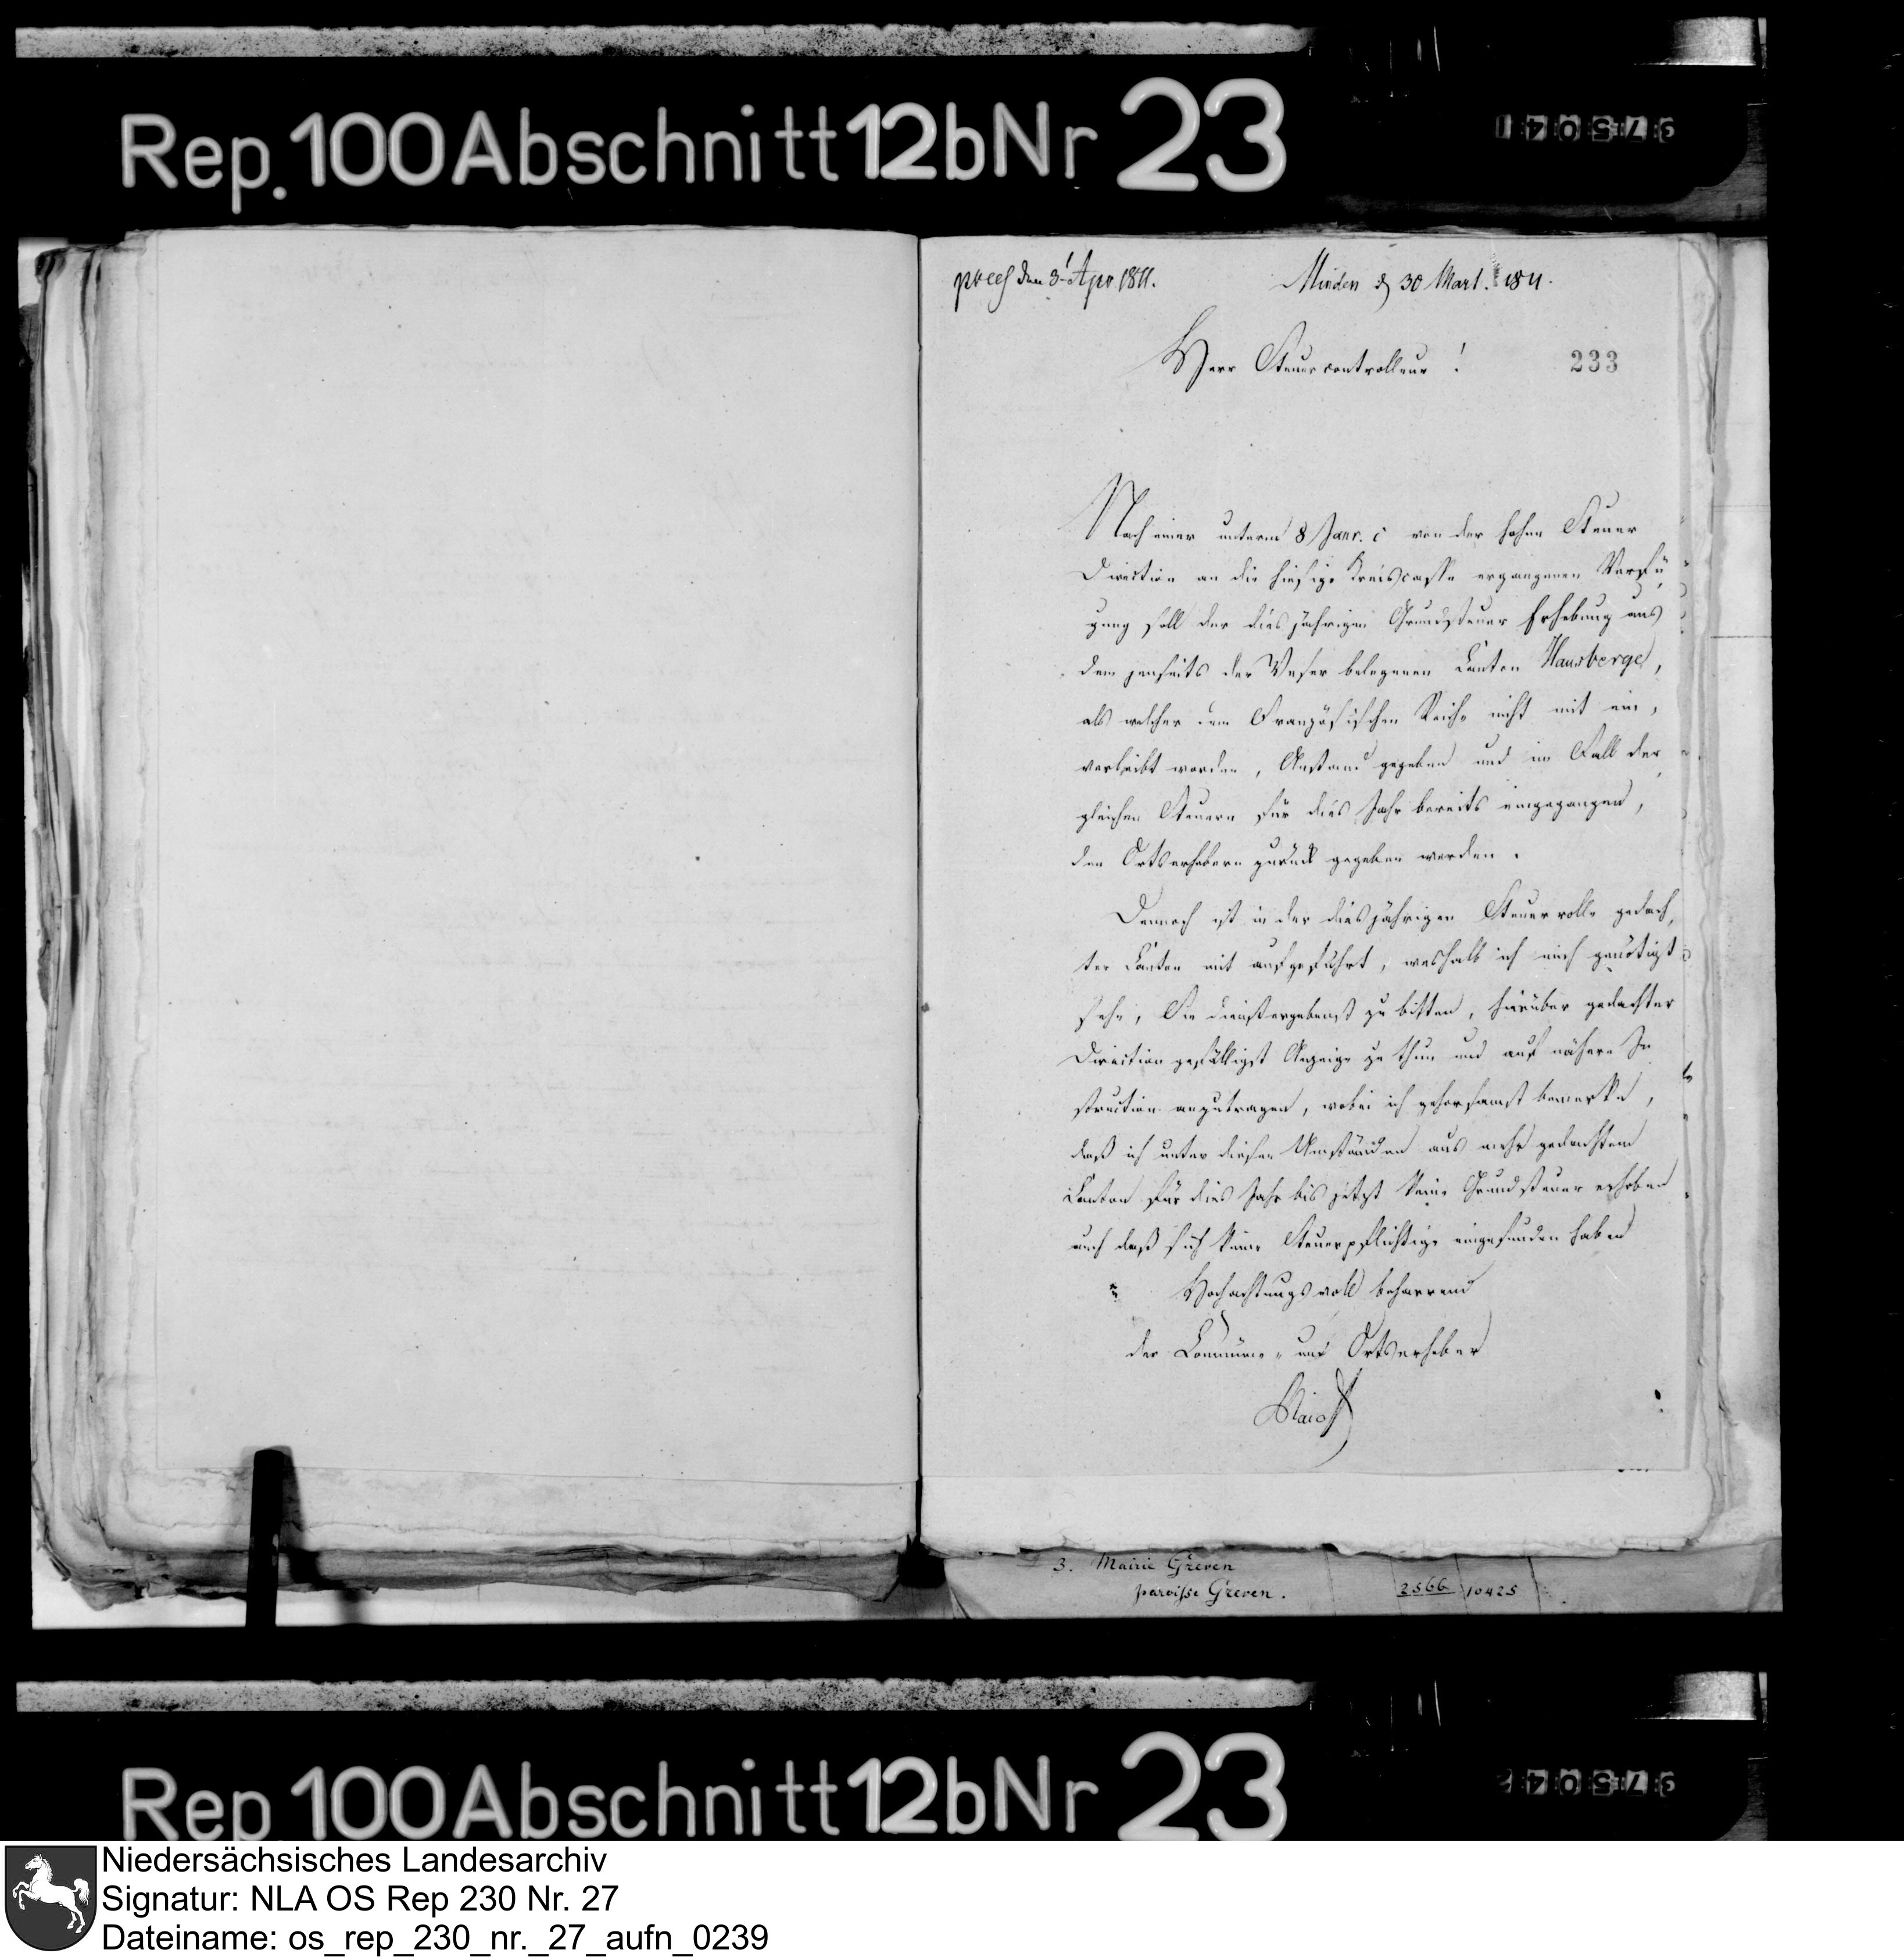 Rep. 100 Abschnitt 12b Nr 23
praes den 3t Apr. 1811.
Minden d 30 Mart. 1811.
Herr Steuercontrolleur!
233
Nach einer unterm 8 Janr. c von der hohen Steuer
Direction an die hiesige Kreiscasse ergangenen Verfü
gung soll der diesjährigen Grundsteuer Erhebung aus
dem jenseits der Weser belegenen Canton Hausberge,
als welcher dem Französischen Reiche nicht mit ein,
verleibt worden, Anstand gegeben und im Fall der
gleichen Steuern für dies Jahr bereits eingegangen,
den Ortserhebern zurück gegeben werden.
Dennoch ist in der diesjährigen Steuerrolle gedach,
ter Canton mit aufgeführt, weshalb ich mich genötigt
sehe, Sie dienstergebenst zu bitten, hierüber gedachter
Direction gefälligst Anzeige zu thun und auf nähere In
struction anzutragen, wobei ich gehorsamst bemerke,
daß ich unter diesen Umständen aus mehr gedachtem
Canton für dies Jahr bis jetzt keine Grundsteuer erhoben
auch daß sich keine Steuerpflichtige eingefunden haben
Hochachtungsvoll beharrend
der Commüne- und Ortserheber
3. Mairie Greven
paroisse Greven. 2566 10425
Rep 100 Abschnitt 12b Nr 23
Niedersächsisches Landesarchiv
Signatur: NLA OS Rep 230 Nr. 27
Dateiname: os_rep_230_nr._27_aufn_0239